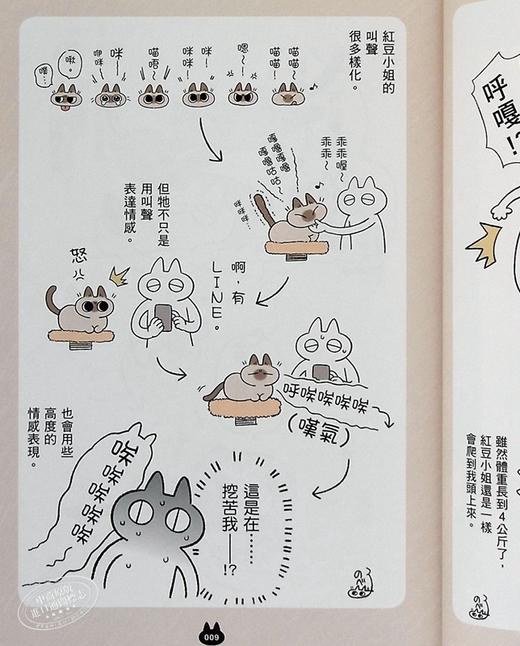 紅豆小姐的
叫聲
很多樣化。
喵~
喵~
喵喵!
嗯~
咪!
咪咪
喵唔~
咪!
咿咪
啾。
嘿…
乖乖喔~
乖乖~
嘎嚕嚕嚕
嘎嚕咕咕~
咪咪…
但牠不只是
用叫聲
表達情感。
啊,有
LINE。
怒
呼唉唉唉唉
(嘆氣)
也會用些
高度的
情感表現。
唉唉唉唉唉
這是在……
挖苦我——!?
009
呼嘎!?
雖然體重長到4公斤了,
紅豆小姐還是一樣
會爬到我頭上來。